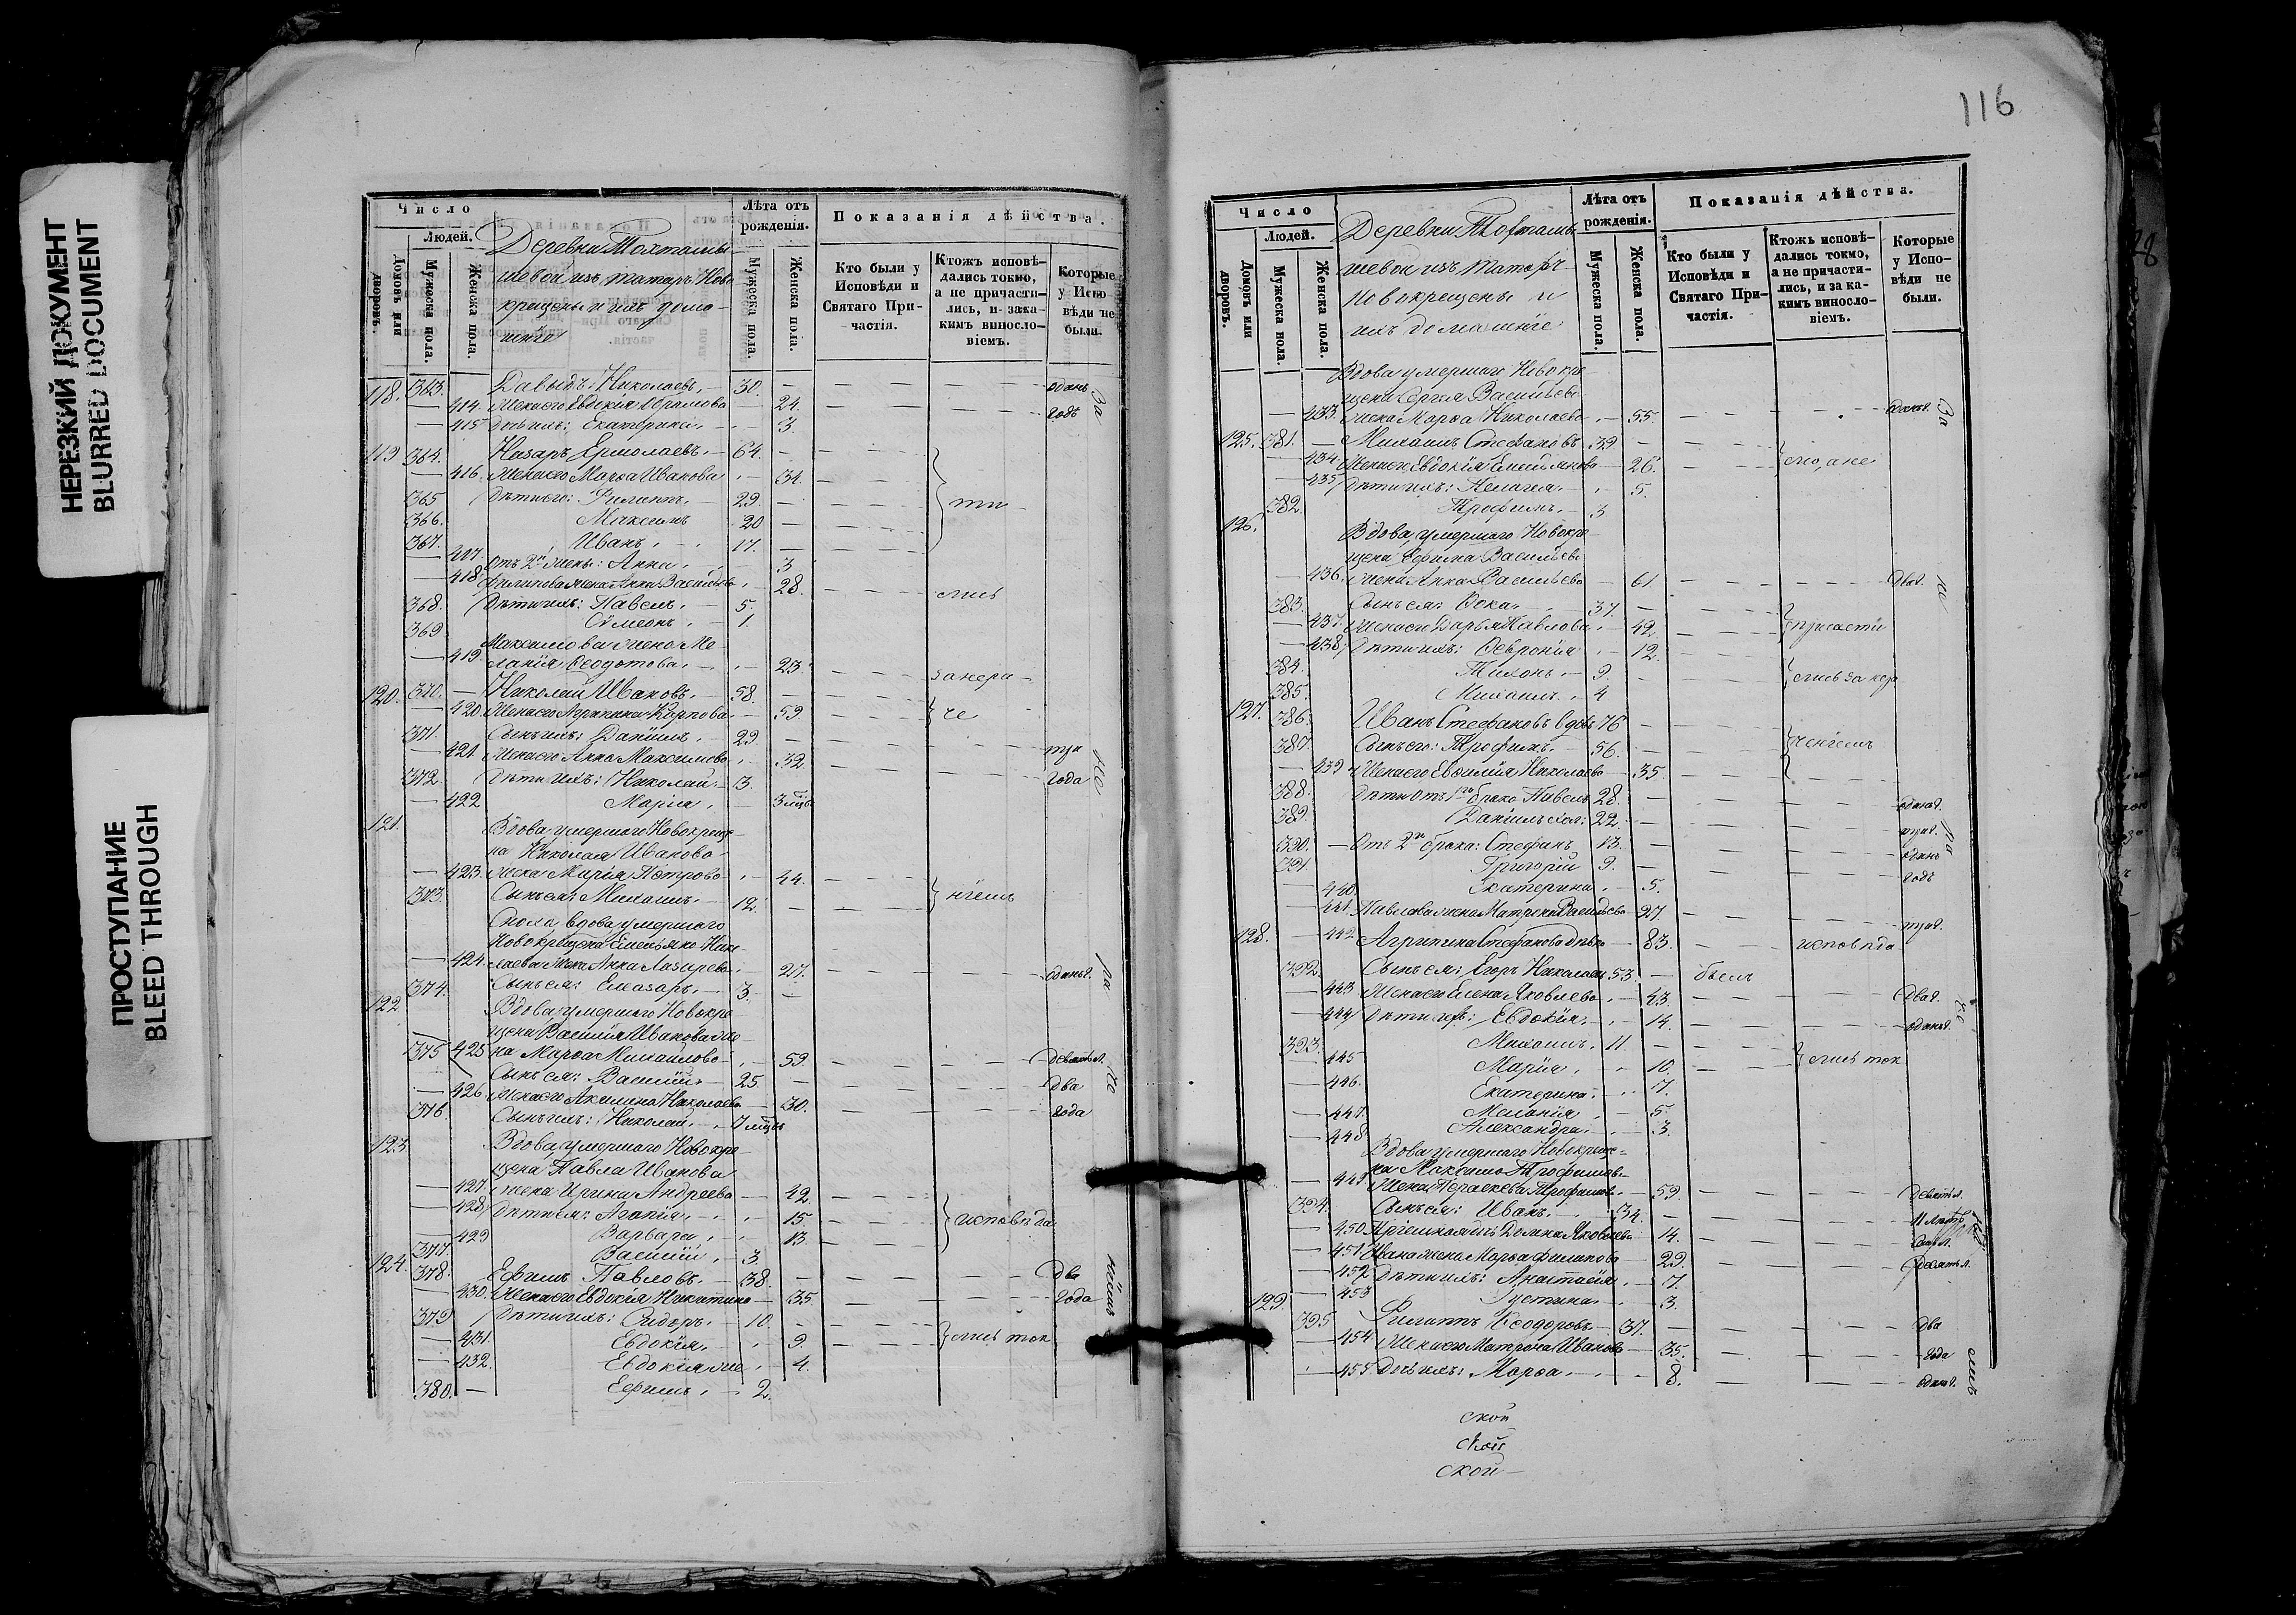 НЕРЕЗКИЙ ДОКУМЕНТ
BLURRED DOCUMENT
ПРОСТУПАНИЕ
BLEED THROUGH
Число
Людей.
Домовъ или дворовъ.
Мужеска пола.
Женска пола.
Деревни Тохталы-
шевой изъ татаръ Ново
крещены и ихъ дома-
шніе
Лѣта отъ рожденія.
Мужеска пола.
Женска пола.
Показанія дѣйства.
Кто были у Исповѣди и Святаго При-частія.
Ктожъ исповѣ-дались токмо, а не причасти-лись, и за ка-кимъ винословіемъ.
Которые у Испо вѣди не были.
118. 363. Давыдъ Николаевъ 30. одинъ За
414. Жена его Евдокія Абрамова 24. годъ
415 Дочь ихъ: Екатерина 3.
119 364. Назаръ Ермолаевъ 64.
416. Жена его Марѳа Иванова 34.
365 Дѣти его: Филиппъ 29.
366. Максимъ 20
367. Иванъ 17.
417. Отъ 2й жены: Анна 3
418 Филипова жена Анна Васильева 28. лись
368. Дѣти ихъ: Павелъ 5.
369 Сѵмеонъ 1.
Максимова жена Ме-
419. ланія Ѳедотова 23. за нера-
120. 370. Николай Ивановъ 58.
420. Жена его Агрипина Карпова 59. че
371. Сынъ ихъ: Даніилъ 29.
421 Жена его Анна Максимова 32. три не
372 Дѣти ихъ: Николай 3. года
422 Марія 3 мѣс
121. Вдова умершаго Новокреще-
на Николая Иванова
423. жена Марія Петрова 44.
373. Сынъ ея: Михаилъ 12. ніемъ
Сноха вдова умершаго
Новокрещена Емельяна Нико
424. лаева жена Анна Лазарева 27. одинъ г. ра
374. Сынъ ея: Елеазаръ 3.
122 Вдова умершаго Новокре
щена Василія Иванова же-
375 425 на Марѳа Михайлова 59. девять л. че
Сынъ ея: Василій 25. два
426 Жена его Акилина Николаева 30. года
376. Сынъ ихъ: Николай 7 мѣс
123 Вдова умершаго Новокре
щена Павла Иванова
427. жена Ирина Андреева 42.
428 Дѣти ея: Агапія 15. исповѣда
429 Варвара 13.
377. Василій 3
124. 378. Ефимъ Павловъ 38. Два ніемъ
430. Жена его Евдокія Никитина 35. года
379 Дѣти ихъ: Сидоръ 10.
431 Евдокія 9. лись ток
432. Евдокія же 4.
380. Ефимъ 2.
116
Число
Людей.
Домовъ или дворовъ.
Мужеска пола.
Женска пола.
Деревни Тохталы-
шевой изъ татаръ
Новокрещены и
ихъ домашніе
Лѣта отъ рожденія.
Мужеска пола.
Женска пола.
Показанія дѣйства.
Кто были у Исповѣди и Святаго При-частія.
Ктожъ исповѣ-дались токмо, а не причасти-лись, и за ка-кимъ винословіемъ.
Которые у Испо-вѣди не были.
Вдова умершаго Новокре
щена Сергія Васильева
433. жена Марѳа Николаева 55. одинъ г. За
125. 381. Михаилъ Стефановъ 39
434 Жена его Евдокія Емельянова 26. мо, а не
435 Дѣти ихъ: Пелагія 5.
382. Трофимъ 3
126. Вдова, умершаго Новокре
щена Ефима Васильева
436. жена Анна Васильева 61 два г. не
383. Сынъ ея: Ѳока 37.
437. Жена его Дарья Павлова 42. причасти
438. Дѣти ихъ: Ѳевронія 12.
384. Тихонъ 9.
385. Михаилъ 4 лись за нер
127. 386. Иванъ Стефановъ вдовъ 76
387. Сынъ его: Трофимъ 56. ченіемъ
439 Жена его Евѳимія Николаева 35.
388. Дѣти отъ 1го брака Павелъ 28. одинъ г.
389. Даніилъ хол: 22. три г. ра
390. Отъ 2го брака: Стефанъ 13. одинъ
391. Григорій 9. годъ
440. Екатерина 5.
441. Павлова жена Матрена Васильева 27. три г.
128. 442 Агрипина Стефанова дѣвка 83. исповѣда
392. Сынъ ея: Егоръ Николаевъ 53. былъ
443 Жена его Елена Яковлева 43. два г. че
444 Дѣти ихъ: Евдокія 14. одинъ г.
393. Михаилъ 11.
445 Марія 10. лись ток
446. Екатерина 7.
447. Меланія 5.
448 Александра 3.
Вдова умершаго Новокреще-
на Максима Трофимова
449 Жена Параскева Трофимова 59. девять л.
394. Сынъ ея: Иванъ 34. 11 лѣтъ
450. Яковлева 14.
451 Ивана жена Марѳа Филипова 29. девять л.
452 Дѣти ихъ: Анастасія 7.
453 Іустина 3.
129. 395 Филиппъ Ѳеодоровъ 37. два
454 Жена его Матрона Иванова 35. года
455 Дочь ихъ: Марѳа 8. одинъ г. емъ
ской
ской
ской